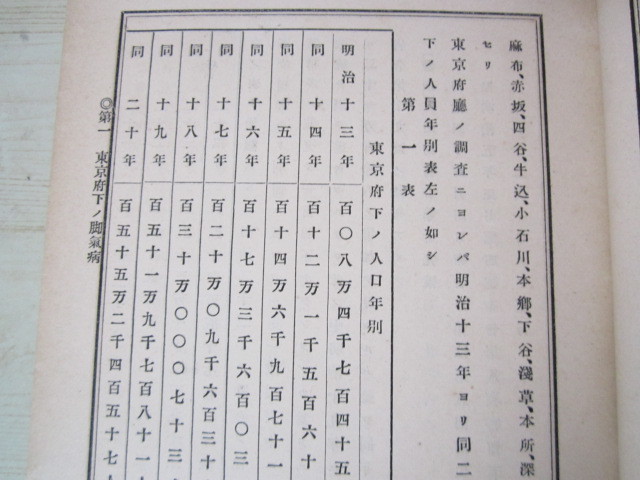 麻布、赤坂、四谷、牛込、小石川、本鄕、下谷、淺草、本所、深
セリ
東京府廳ノ調査ニヨレバ明治十三年ヨリ同二
下ノ人員年別表左ノ如シ
第一表
東京府下ノ人口年別
明治十三年 百〇八万四千七百四十五
同十四年 百十二万一千五百六十
同十五年 百十四万六千九百七十一
同十六年 百十七万三千六百〇三
同十七年 百二十万〇九千六百三十
同十八年 百三十万〇〇〇七十三
同十九年 百五十一万九千七百八十一
同二十年 百五十五万二千四百五十七
◎第一 東京府下ノ脚氣病